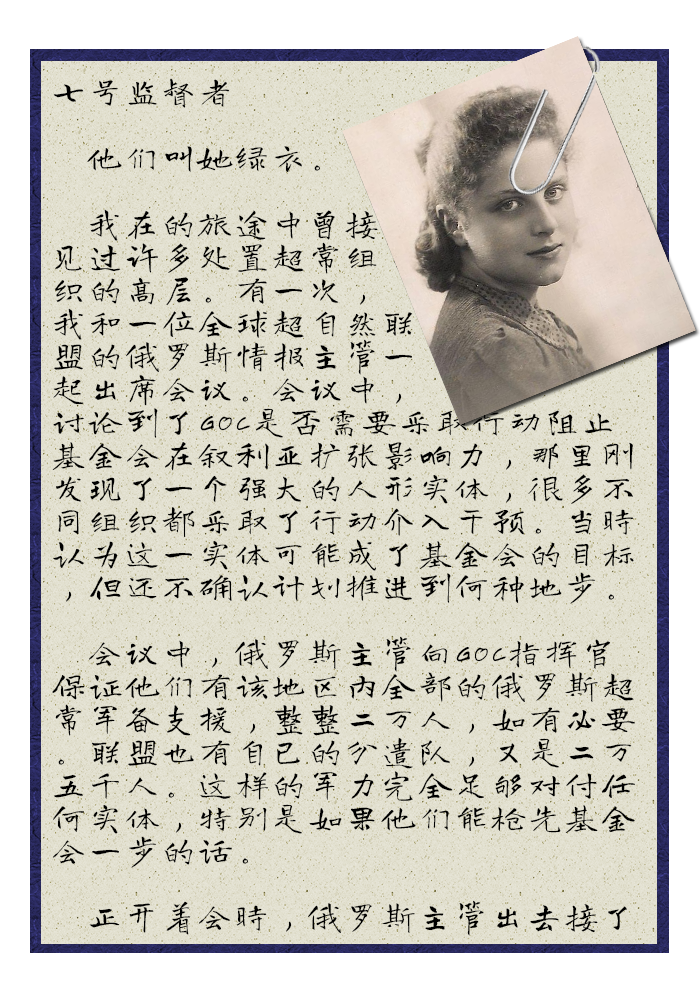 七号监督者
他们叫她绿衣。
我在的旅途中曾接
见过许多处置超常组
织的高层。有一次，
我和一位全球超自然联
盟的俄罗斯情报主管一
起出席会议。会议中，
讨论到了GOC是否需要采取行动阻止
基金会在叙利亚扩张影响力，那里刚
发现了一个强大的人形实体，很多不
同组织都采取了行动介入干预。当時
认为这一实体可能成了基金会的目标
，但还不确认计划推进到何种地步。
会议中，俄罗斯主管向GOC指挥官
保证他们有该地区内全部的俄罗斯超
常军备支援，整整二万人，如有必要
。联盟也有自己的分遣队，又是二万
五千人。这样的军力完全足够对付任
何实体，特别是如果他们能枪先基金
会一步的话。
正开着会時，俄罗斯主管出去接了